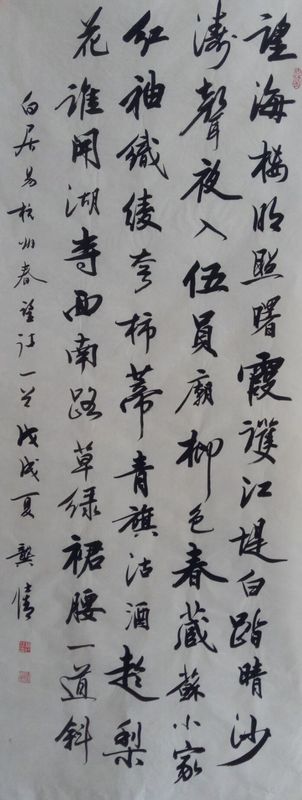 望海楼明照曙霞護江堤白踏晴沙
濤聲夜入伍員廟柳色春藏蘇小家
紅袖織綾夸柿蒂青旗沽酒趁梨
花誰開湖寺西南路草绿裙腰一道斜
白居易杭州春望诗一首戊戌夏龔情